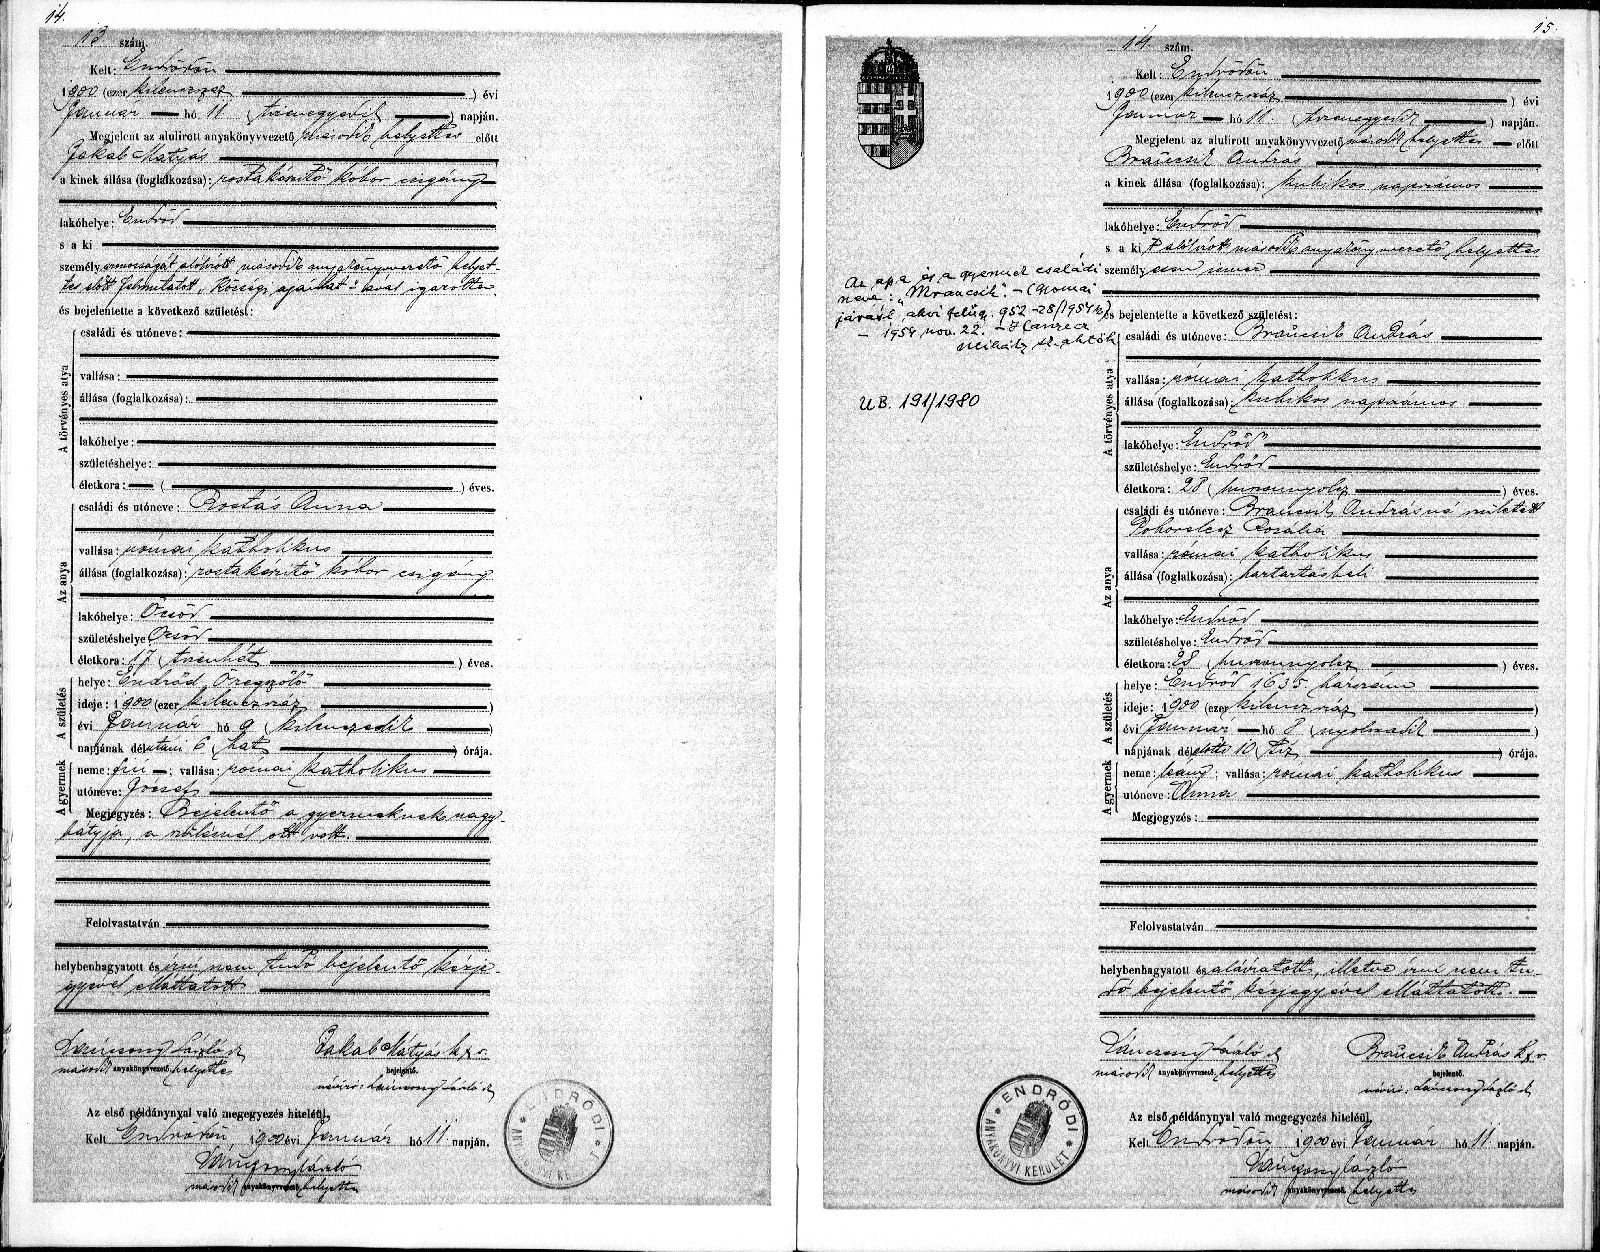 14.
13 szám.
Kelt: Endrődön
1900 (ezer kilenczszáz) évi
Január hó 11 (tizenegyedik) napján.
Megjelent az alulirott anyakönyvvezető második helyettes előtt
Jakab Mátyás
a kinek állása (foglalkozása): rostakészitő kóbor czigány
lakóhelye: Endrőd
s a ki
személyazonosságát alólirott második anyakönyvvezető helyet-
tes előtt felmutatott, községi ajánlat-ával igazolta
és bejelentette a következő születést:
A törvényes atya
családi és utóneve:
vallása:
állása (foglalkozása):
lakóhelye:
születéshelye:
életkora: ( ) éves.
Az anya
családi és utóneve: Rostás Anna
vallása: római katholikus
állása (foglalkozása): rostakészitő kóbor czigány
lakóhelye: Öcsöd
születéshelye Öcsöd
életkora: 17 (tizenhét) éves.
A születés
helye: Endrőd, Öregszőlő
ideje: 1900 (ezer kilenczszáz)
évi Január hó 9 (kilenczedik)
napjának délutáni 6 (hat) órája.
A gyermek
neme: fiú; vallása: római katholikus
utóneve: József
Megjegyzés: Bejelentő a gyermeknek nagy-
bátyja, a szülésnél ott volt.
Felolvastatván
helybenhagyatott és irni nem tudó bejelentő kézje-
gyével elláttatott
Lánczony László
második anyakönyvvezető helyettes
Jakab Mátyás k. x. v.
bejelentő.
névíró: Lánczony László
Az első példánynyal való megegyezés hiteléül.
Kelt Endrődön, 1900 évi Január hó 11 napján.
Lánczony László
második anyakönyvvezető helyettes
ENDRŐDI ANYAKÖNYVI KERÜLET
15.
14 szám.
Kelt: Endrődön
1900 (ezer kilenczszáz) évi
Január hó 11 (tizenegyedik) napján.
Megjelent az alulirott anyakönyvvezető második helyettes előtt
Braucsik András
a kinek állása (foglalkozása): kubikos napszámos
lakóhelye: Endrőd
s a ki alólirott második anyakönyvvezető helyettes
személyesen ismer
és bejelentette a következő születést:
Az apa és a gyermek családi
neve: „Mraucsik". –
952-28/1954
– 1954 nov. 22. –
U.B. 191/1980
A törvényes atya
családi és utóneve: Braucsik András
vallása: római katholikus
állása (foglalkozása): kubikos napszámos
lakóhelye: Endrőd
születéshelye: Endrőd
életkora: 28 (huszonnyolcz) éves.
Az anya
családi és utóneve: Braucsik Andrásné született
Rozália
vallása: római katholikus
állása (foglalkozása): háztartásbeli
lakóhelye: Endrőd
születéshelye: Endrőd
életkora: 28 (huszonnyolcz) éves.
A születés
helye: Endrőd 1635 házszám
ideje: 1900 (ezer kilenczszáz)
évi Január hó 8 (nyolczadik)
napjának délelőtti 10 (tiz) órája.
A gyermek
neme: leány; vallása: római katholikus
utóneve: Anna
Megjegyzés:
Felolvastatván
helybenhagyatott és aláiratott, illetve irni nem tu-
dó bejelentő kézjegyével elláttatott.
Lánczony László
második anyakönyvvezető helyettes
Braucsik András k. x. v.
bejelentő.
névíró: Lánczony László
Az első példánynyal való megegyezés hiteléül.
Kelt Endrődön 1900 évi Január hó 11 napján.
Lánczony László
második anyakönyvvezető helyettes
ENDRŐDI ANYAKÖNYVI KERÜLET